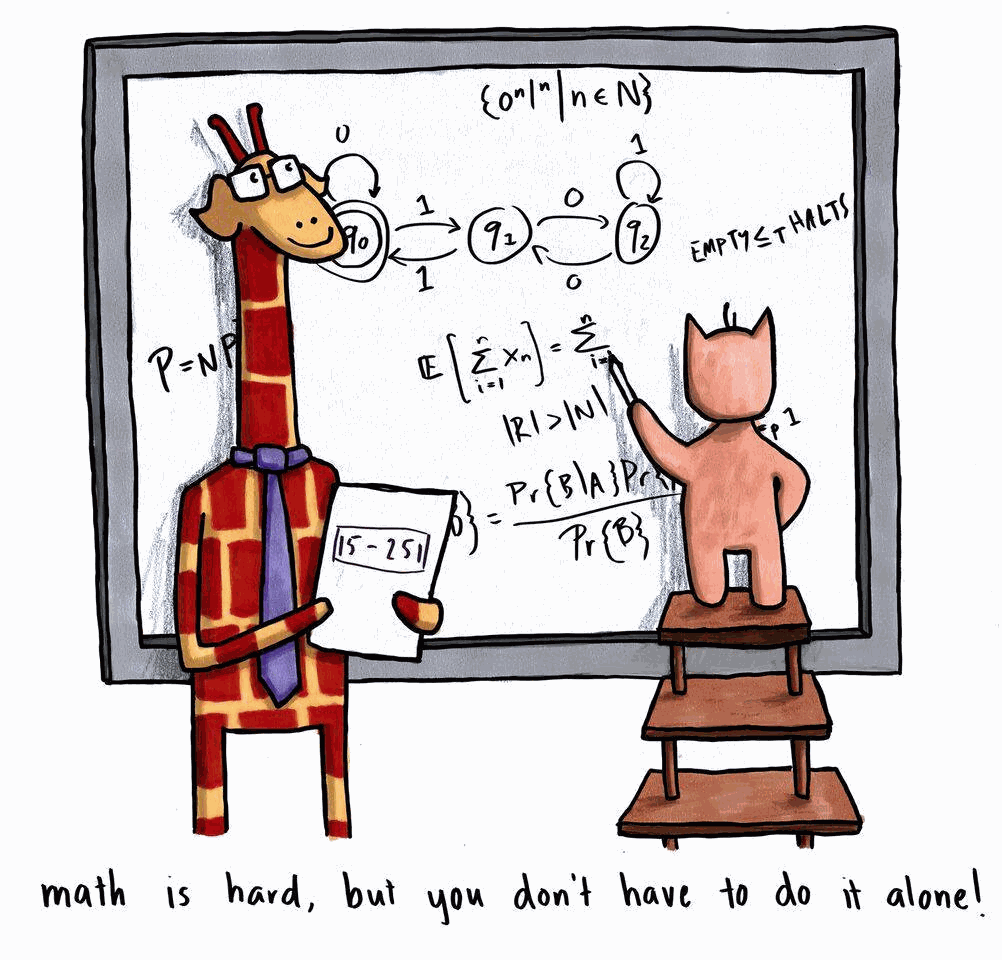 {0ⁿ1ⁿ | n ∈ N}
0
1
1
0
q₀
q₁
q₂
1
0
EMPTY ≤ T HALTS
P = NP
𝔼 [ n ∑ i=1 Xₙ ] = n ∑ i=
|R| > |N|
=p 1
Pr{B|A}Pr{
} =
Pr{B}
15-251
math is hard, but you don't have to do it alone!